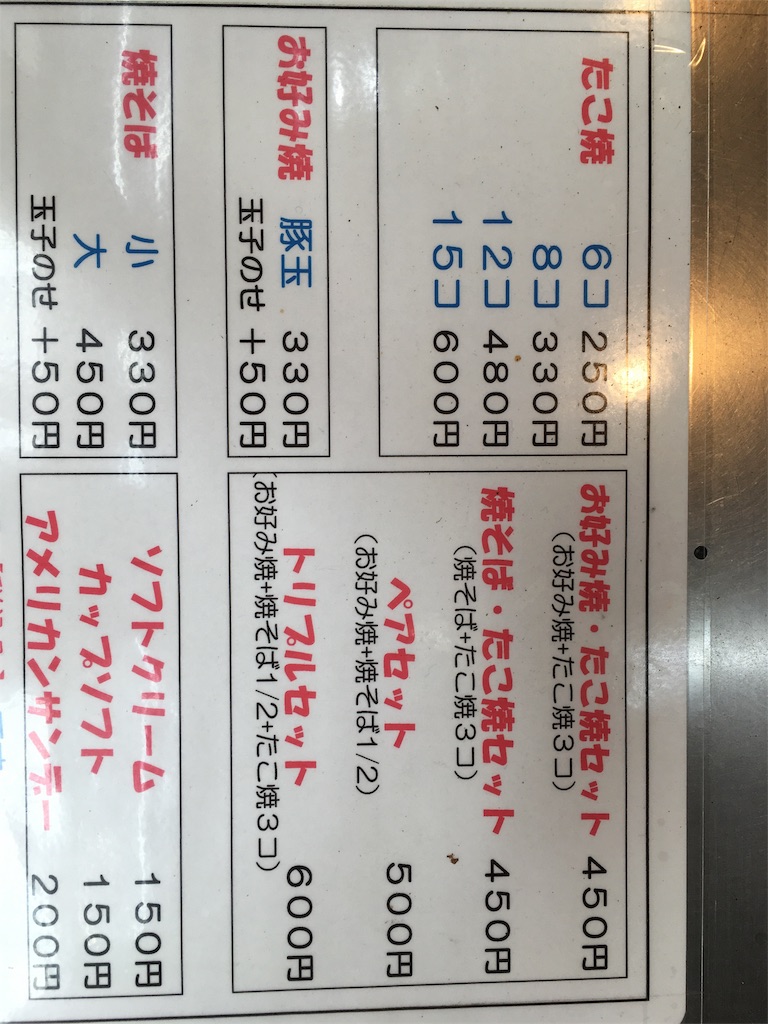 たこ焼
6コ 250円
8コ 330円
12コ 480円
15コ 600円
お好み焼
豚玉 330円
玉子のせ +50円
焼そば
小 330円
大 450円
玉子のせ +50円
お好み焼・たこ焼セット 450円
(お好み焼+たこ焼3コ)
焼そば・たこ焼セット 450円
(焼そば+たこ焼3コ)
ペアセット 500円
(お好み焼+焼そば1/2)
トリプルセット 600円
(お好み焼+焼そば1/2+たこ焼3コ)
ソフトクリーム 150円
カップソフト 150円
アメリカンサンデー 200円